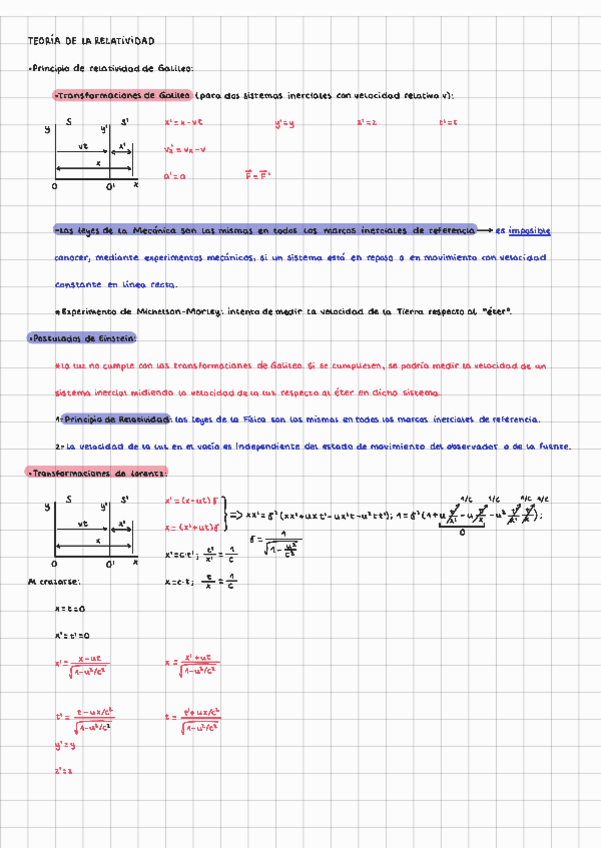 TEORÍA DE LA RELATIVIDAD
•Principio de relatividad de Galileo:
•Transformaciones de Galileo (para dos sistemas inerciales con velocidad relativa v):
S S'
y y'
vt x'
x
O O' x
x'=x-vt y'=y z'=z t'=t
vx'=vx-v
a'=a F=F'
•Las leyes de la Mecánica son las mismas en todos los marcos inerciales de referencia → es imposible
conocer, mediante experimentos mecánicos, si un sistema está en reposo o en movimiento con velocidad
constante en línea recta.
*Experimento de Michelson-Morley: intento de medir la velocidad de la Tierra respecto al "éter".
•Postulados de Einstein:
*La luz no cumple con las transformaciones de Galileo. Si se cumpliesen, se podría medir la velocidad de un
sistema inercial midiendo la velocidad de la luz respecto al éter en dicho sistema.
1- Principio de Relatividad: las leyes de la Física son las mismas en todos los marcos inerciales de referencia.
2- La velocidad de la luz en el vacío es independiente del estado de movimiento del observador o de la fuente.
•Transformaciones de Lorentz:
S S'
y y'
vt x'
x
O O' x
x'=(x-ut)γ
x=(x'+ut)γ
=> xx'=γ²(xx'+uxt'-ux't-u²tt'); 1=γ²(1+u t'/x' - u t/x - u² t/x t'/x');
1/c 1/c 1/c 1/c
0
γ=1/√(1-u²/c²)
x'=c·t'; t'/x'=1/c
x=c·t; t/x=1/c
Al cruzarse:
x=t=0
x'=t'=0
x'=(x-ut)/√(1-u²/c²) x=(x'+ut)/√(1-u²/c²)
t'=(t-ux/c²)/√(1-u²/c²) t=(t'+ux/c²)/√(1-u²/c²)
y'=y
z'=z